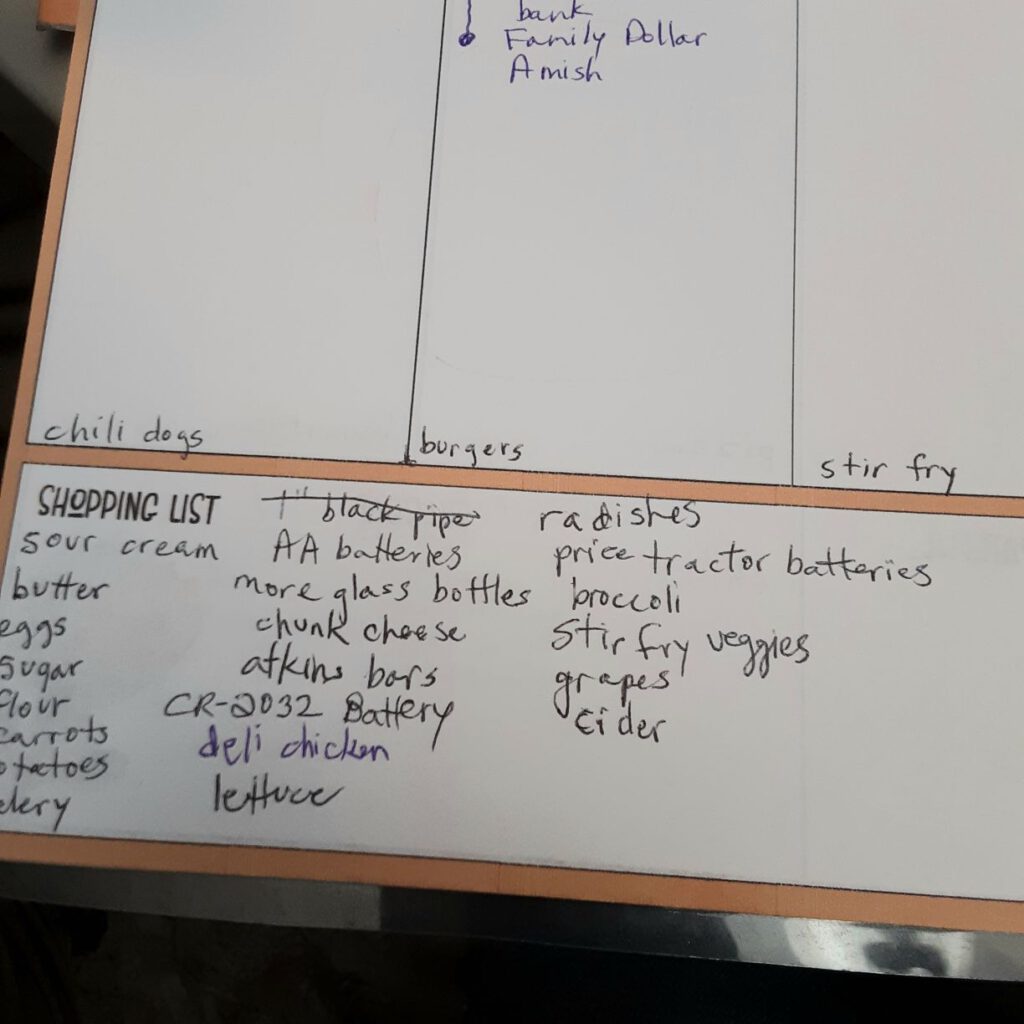 bank
Family Dollar
Amish
chili dogs
burgers
stir fry
SHOPPING LIST
sour cream
butter
eggs
sugar
flour
carrots
otatoes
elery
1" black pipe
AA batteries
more glass bottles
chunk cheese
atkins bars
CR-2032 Battery
deli chicken
lettuce
radishes
price tractor batteries
broccoli
stir fry veggies
grapes
cider